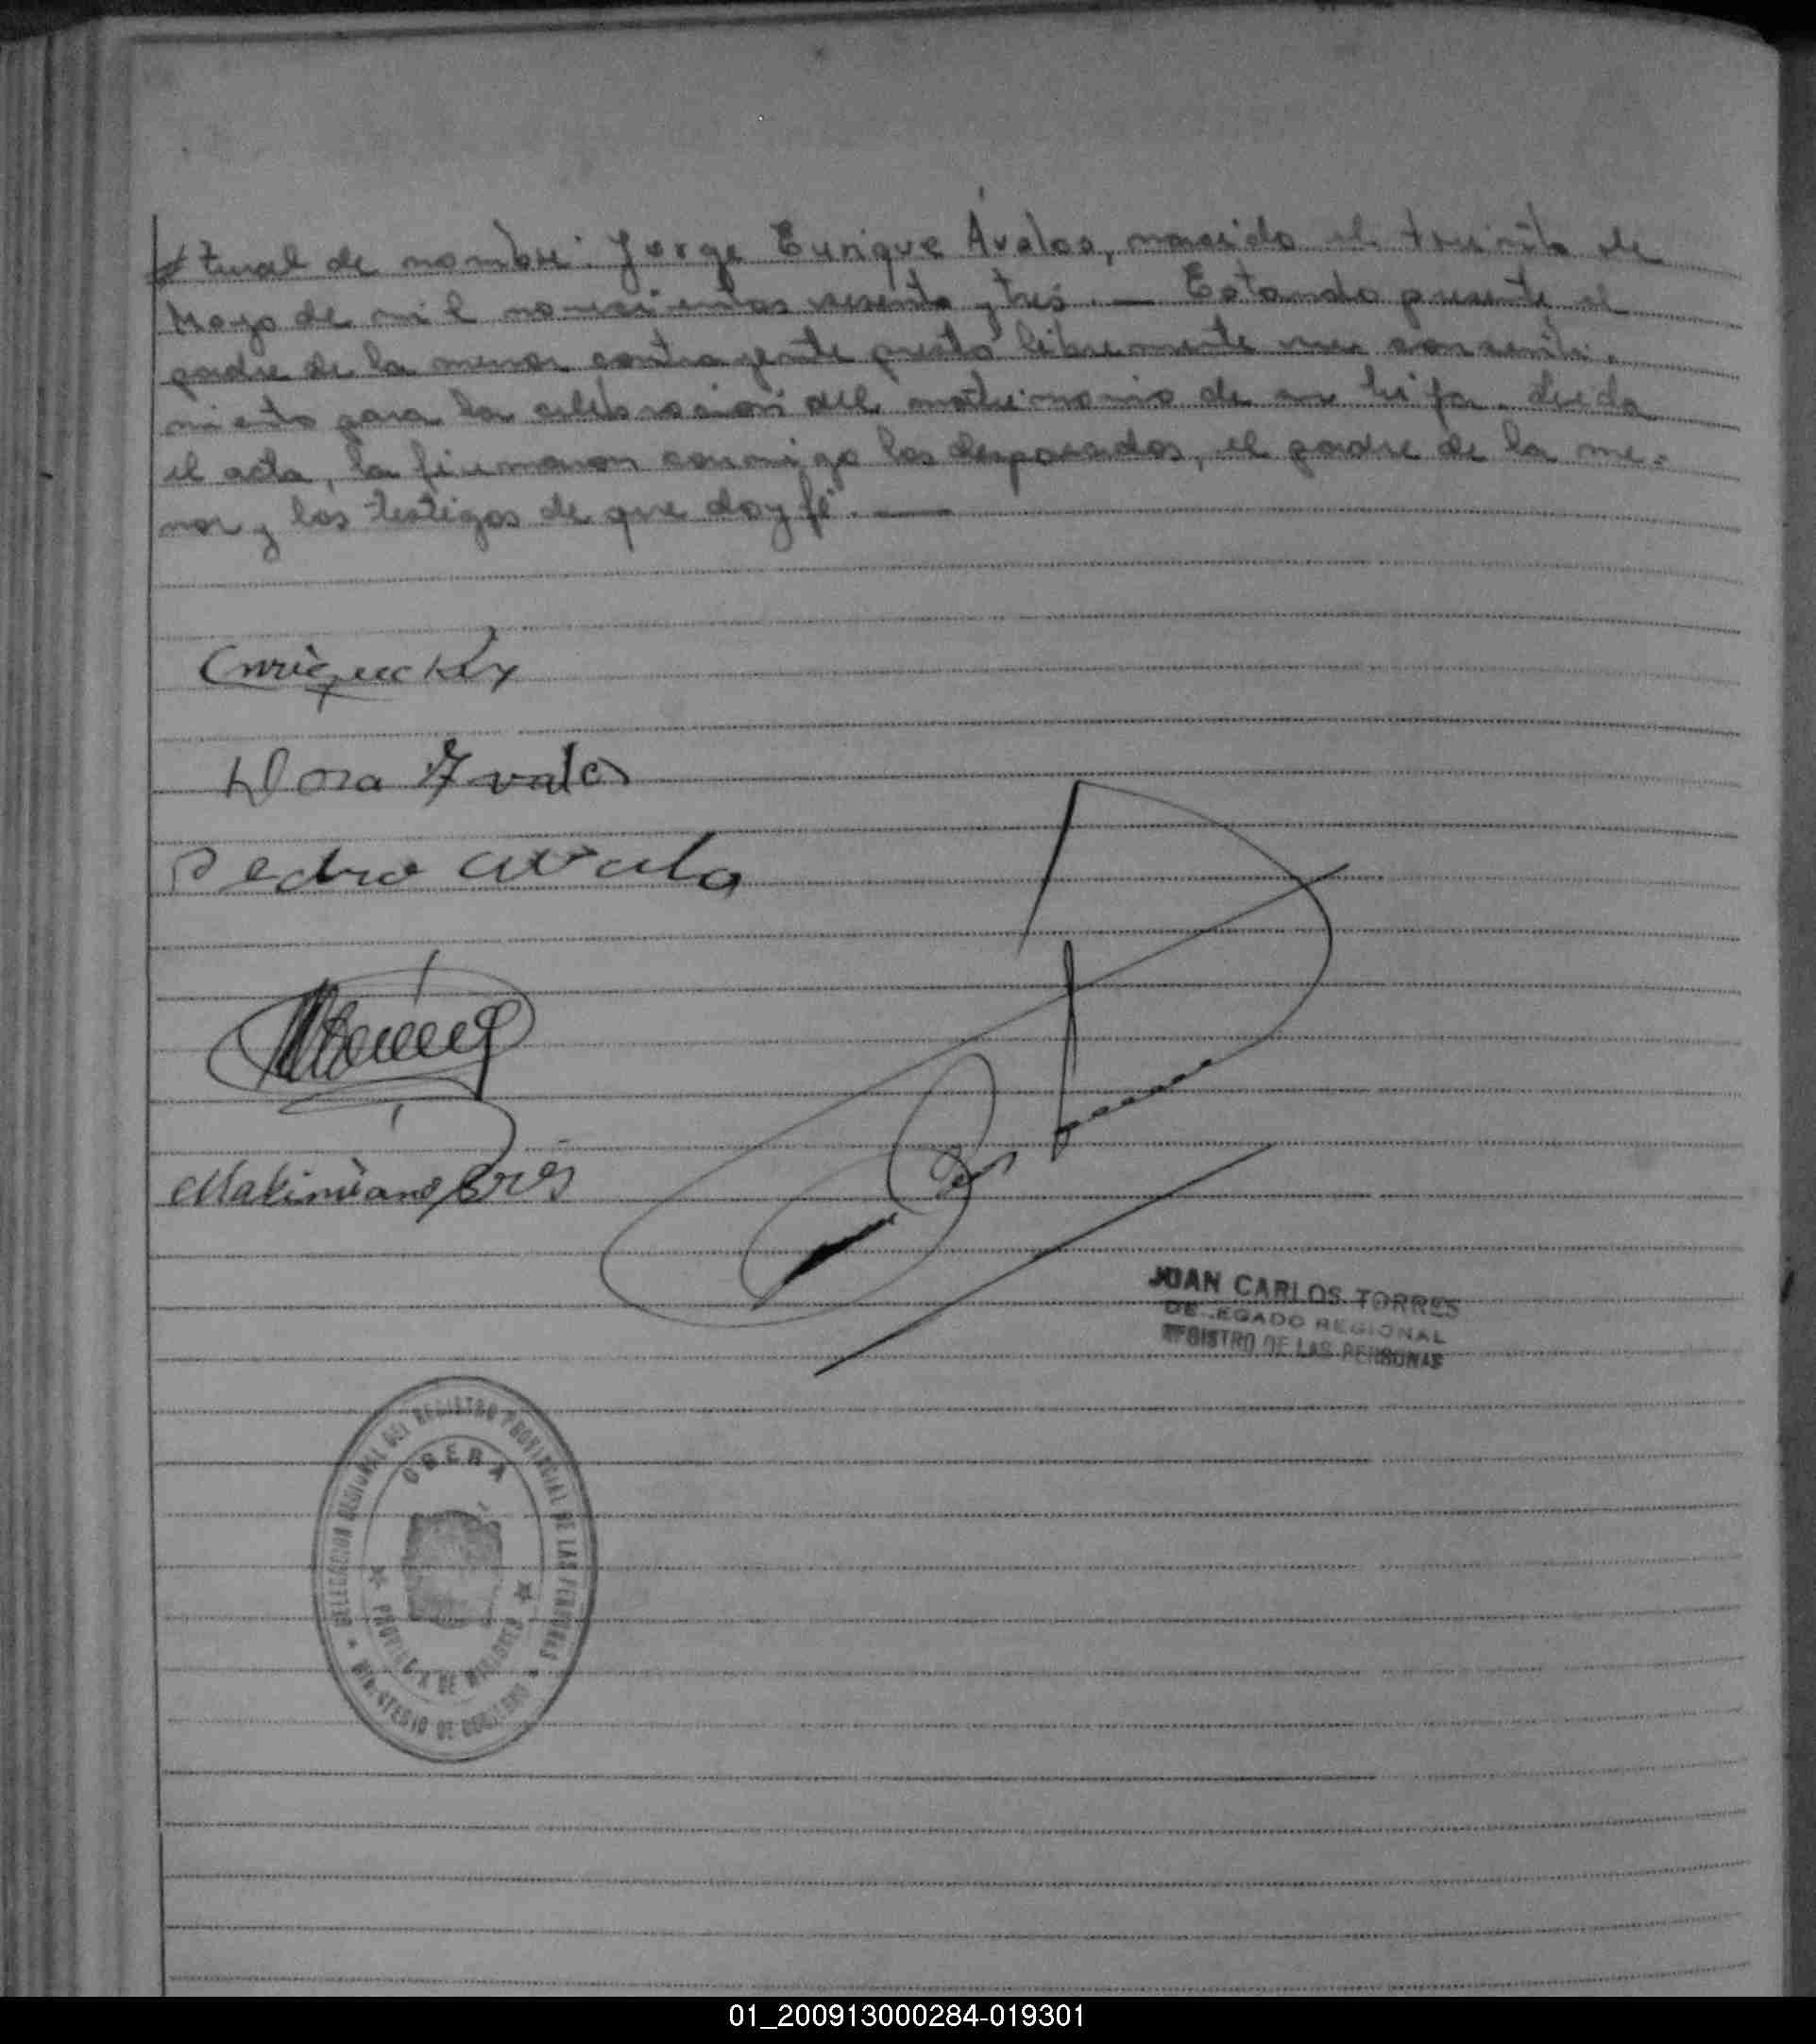 tural de nombre: Jorge Eurique Ávalos, nacido el treinta de
Mayo de mil novecientos sesenta y tres. — Estando presente el
padre de la menor contrayente prestó libremente su consenti-
miento para la celebración del matrimonio de su hija. Leida
el acta, la firmaron conmigo los desposados, el padre de la me-
nor y los testigos de que doy fé. —
Enrique
Dora Avalos
Pedro avalo
Makimiano
JUAN CARLOS TORRES
DELEGADO REGIONAL
REGISTRO DE LAS PERSONAS
DELEGACION REGIONAL DEL REGISTRO PROVINCIAL DE LAS PERSONAS
OBERA
PROVINCIA DE MISIONES
MINISTERIO DE GOBIERNO
01_200913000284-019301